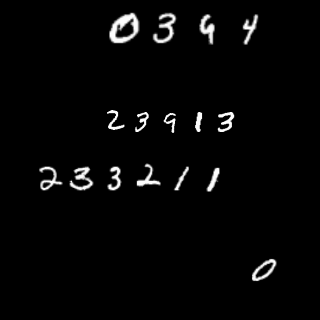 0 3 9 4
2 3 9 1 3
2 3 3 2 1 1
0